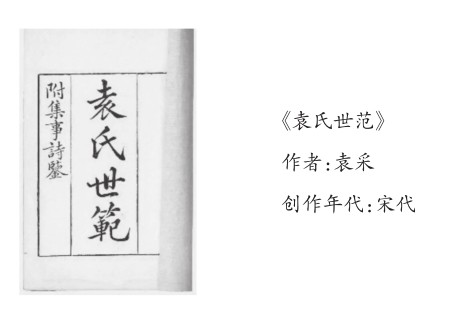 袁氏世範
附集事詩鑒
《袁氏世范》
作者:袁采
创作年代:宋代